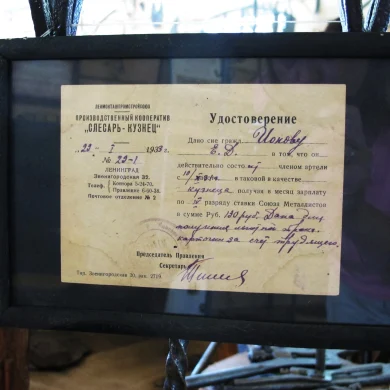 ЛЕНМОНТАЖПРОМСТРОЙСОЮЗ
ПРОИЗВОДСТВЕННЫЙ КООПЕРАТИВ
„СЛЕСАРЬ-КУЗНЕЦ"
„22" I 1933 г.
№ 22-1
ЛЕНИНГРАД
Звенигородская 30.
Телеф. Контора 3-26-70,
Правление 6-60-36.
Почтовое отделение № 2
Удостоверение
Дано сие гражд.
Е. Д. в том, что он
действительно состоит членом артели
с 10/ и таковой в качестве
кузнеца получил в месяц зарплату
по IV разряду ставки Союза Металлистов
в сумме Руб. 130 руб. Дана для
получения
карточки за счет трудящего.
Председатель Правления
Секретарь
Тип. Звенигородская 30, зак. 2718